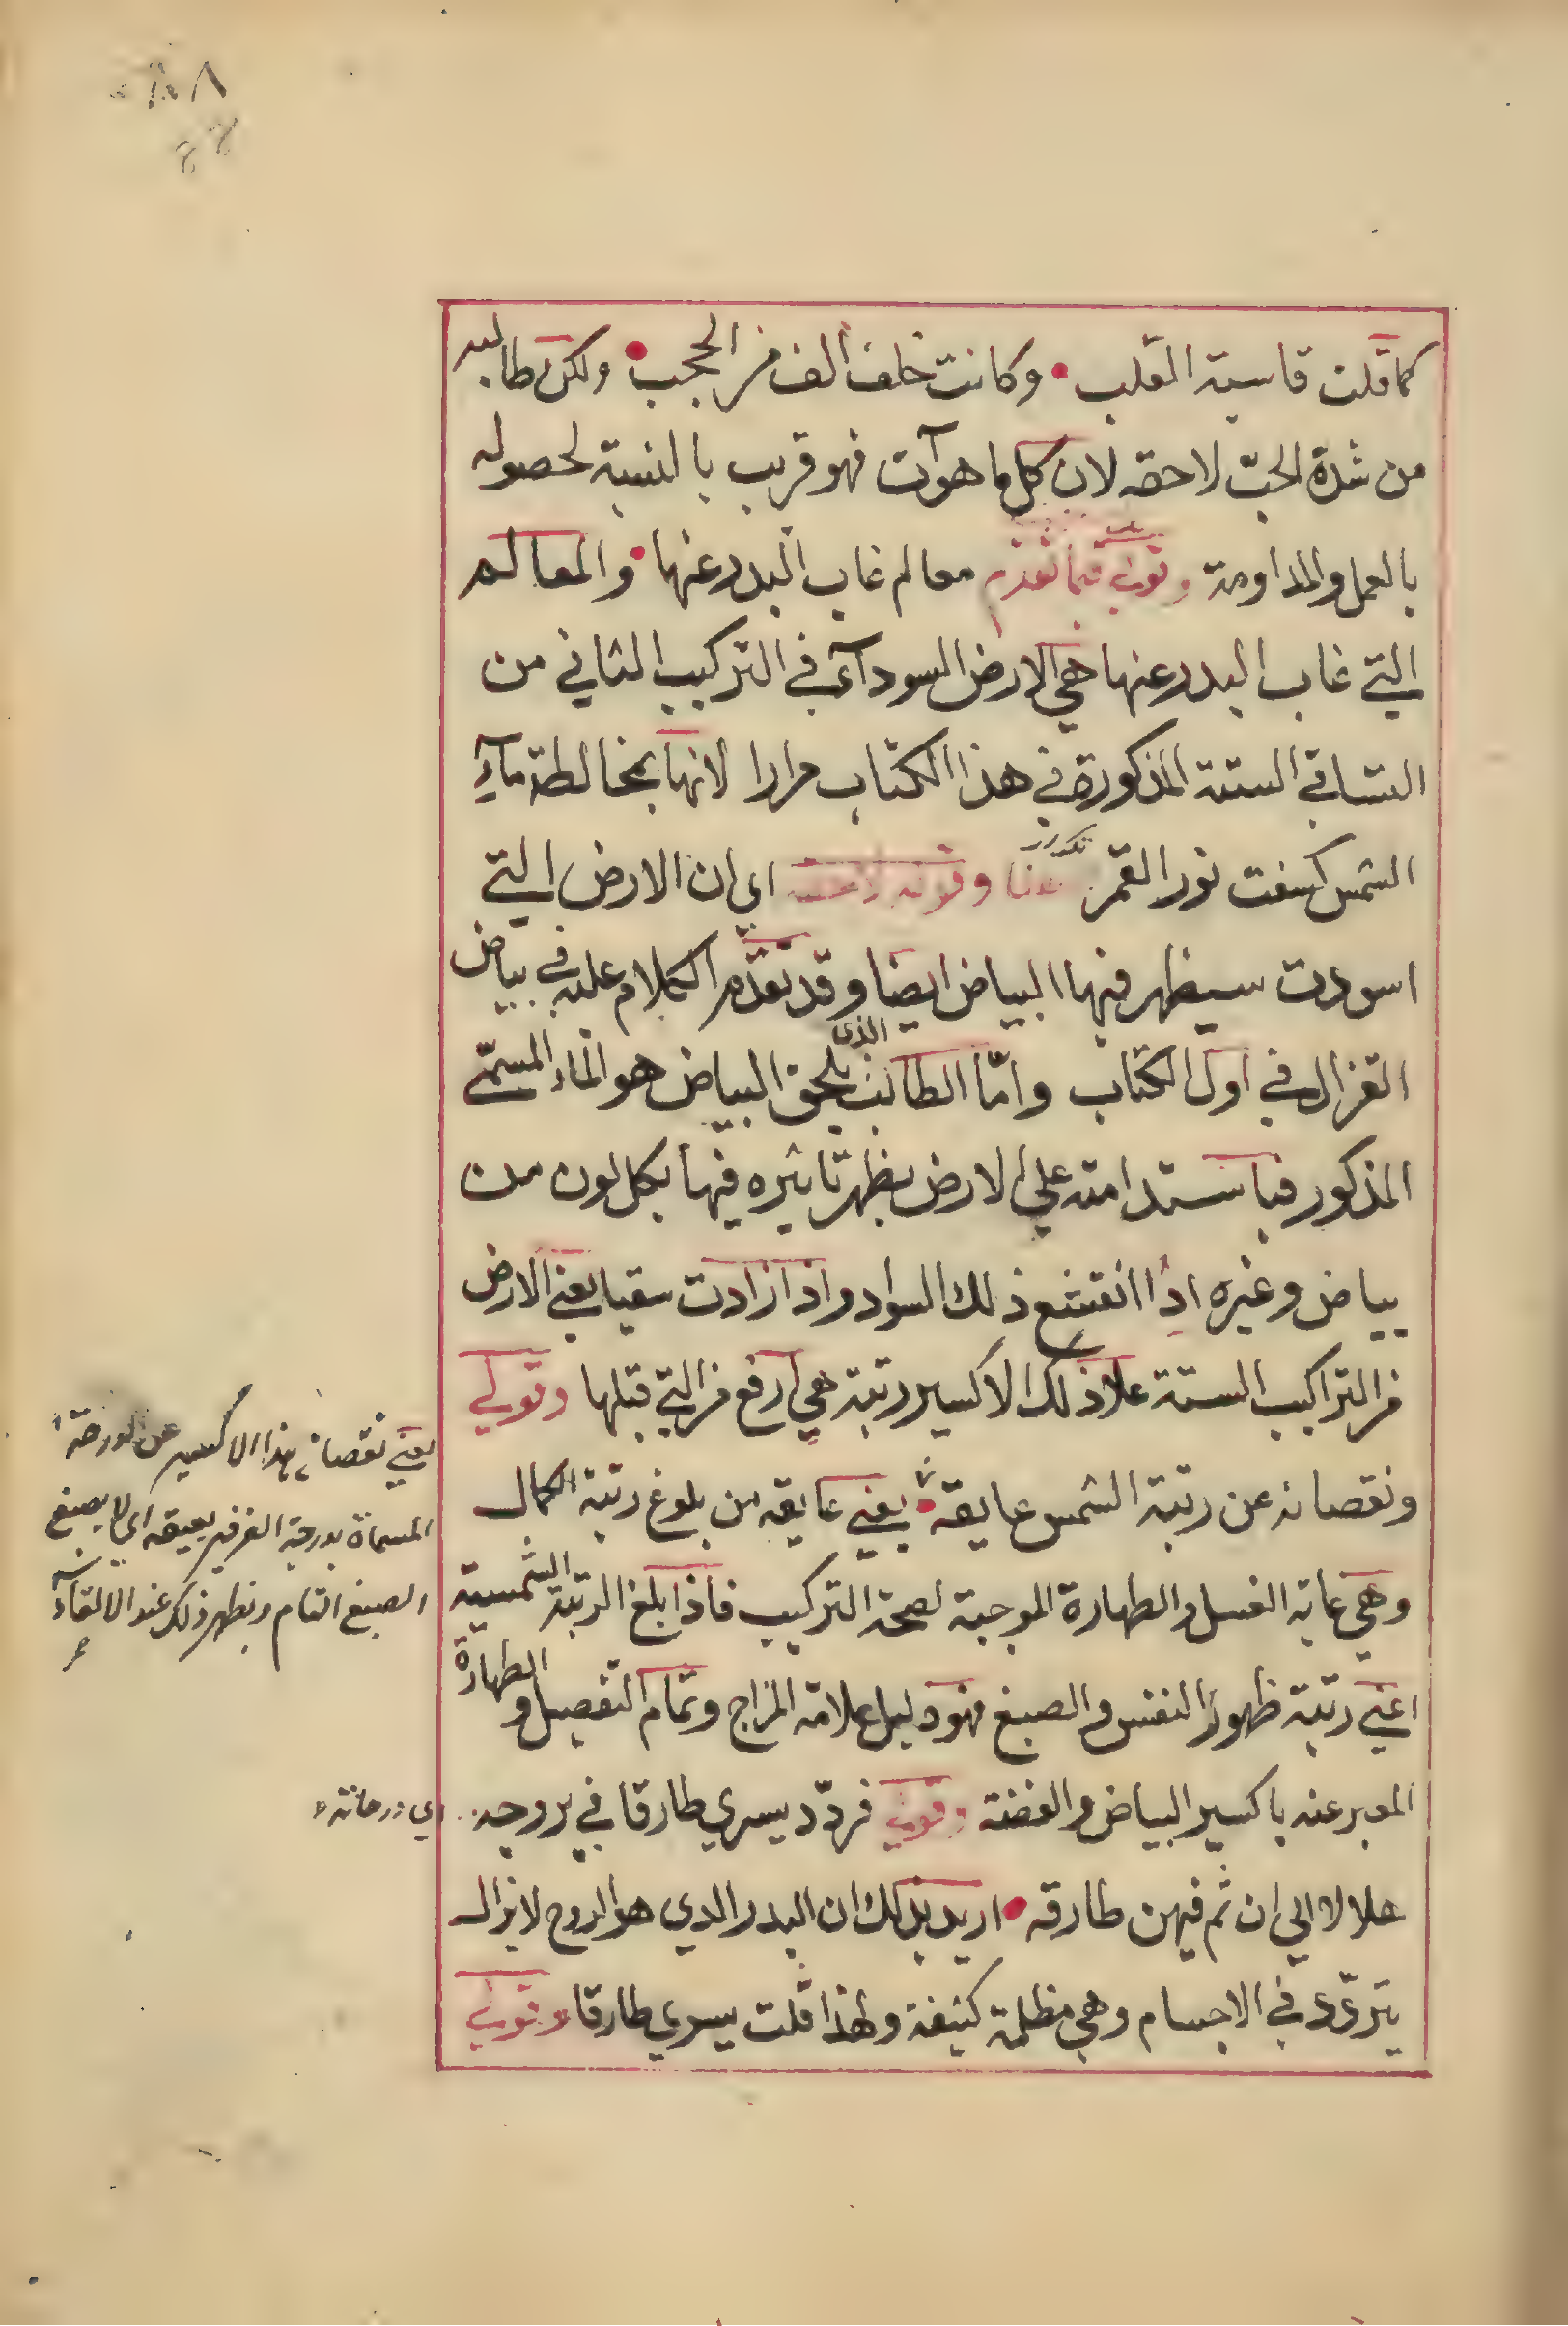 كما قلت قاسية القلب • وكانت خلف ألف من الحجب • ولكن طالبه
من شدة الحبّ لاحقه لان كل ما هو آت فهو قريب بالنسبة لحصوله
بالعمل والمداومة وقولي فيما تقدم معالم غاب البدر عنها • والمعالم
التي غاب البدر عنها هي الارض السودآء في التركيب الثاني من
التساقي الستة المذكورة في هذا الكتاب مرارا لانها بمخالطة مآء
الشمس كسفت نور القمر وقوله لاحقه اي ان الارض التي
اسودت سيظهر فيها البياض ايضا وقد تقدّم الكلام عليه في بياض
القزال في اول الكتاب وامّا الطالب الذى يلحق البياض هو الماء المسمّى
المذكور فباستدامته علي الارض يظهر تاثيره فيها بكل لون من
بياض وغيره اذا انقشع ذلك السواد واذا زادت سقيا يعني الارض
من التراكيب الستة علا ذلك الاكسير رتبة هي ارفع من التي قبلها وقولي
ونقصانه عن رتبة الشمس عايقه • يعني عايقه من بلوغ رتبة الكمال
وهي غاية الغسل والطهارة الموجبة لصحة التركيب فاذا بلغ الرتبة الشمسية
اعني رتبة ظهور النفس والصبغ فهو دليل علامة المزاج وتمام التفصيل والطهارة
المعبر عنه باكسير البياض والفضة وقولي فردّد يسري طارقا في بروجه
هلالا الي ان تم فيهن طارقه • اريد بذلك ان البدر الذي هو الروح لا يزال
يتردّد في الاجسام وهي مظلمة كثيفة ولهذا قلت يسري طارقا وقولي
يعني نقصان هذا الاكسير عن الدرجة
المسماة بدرجة الفرفير يعيقه اي لا يصبغ
الصبغ التام ويظهر ذلك عند الالقآء
اي درجاته